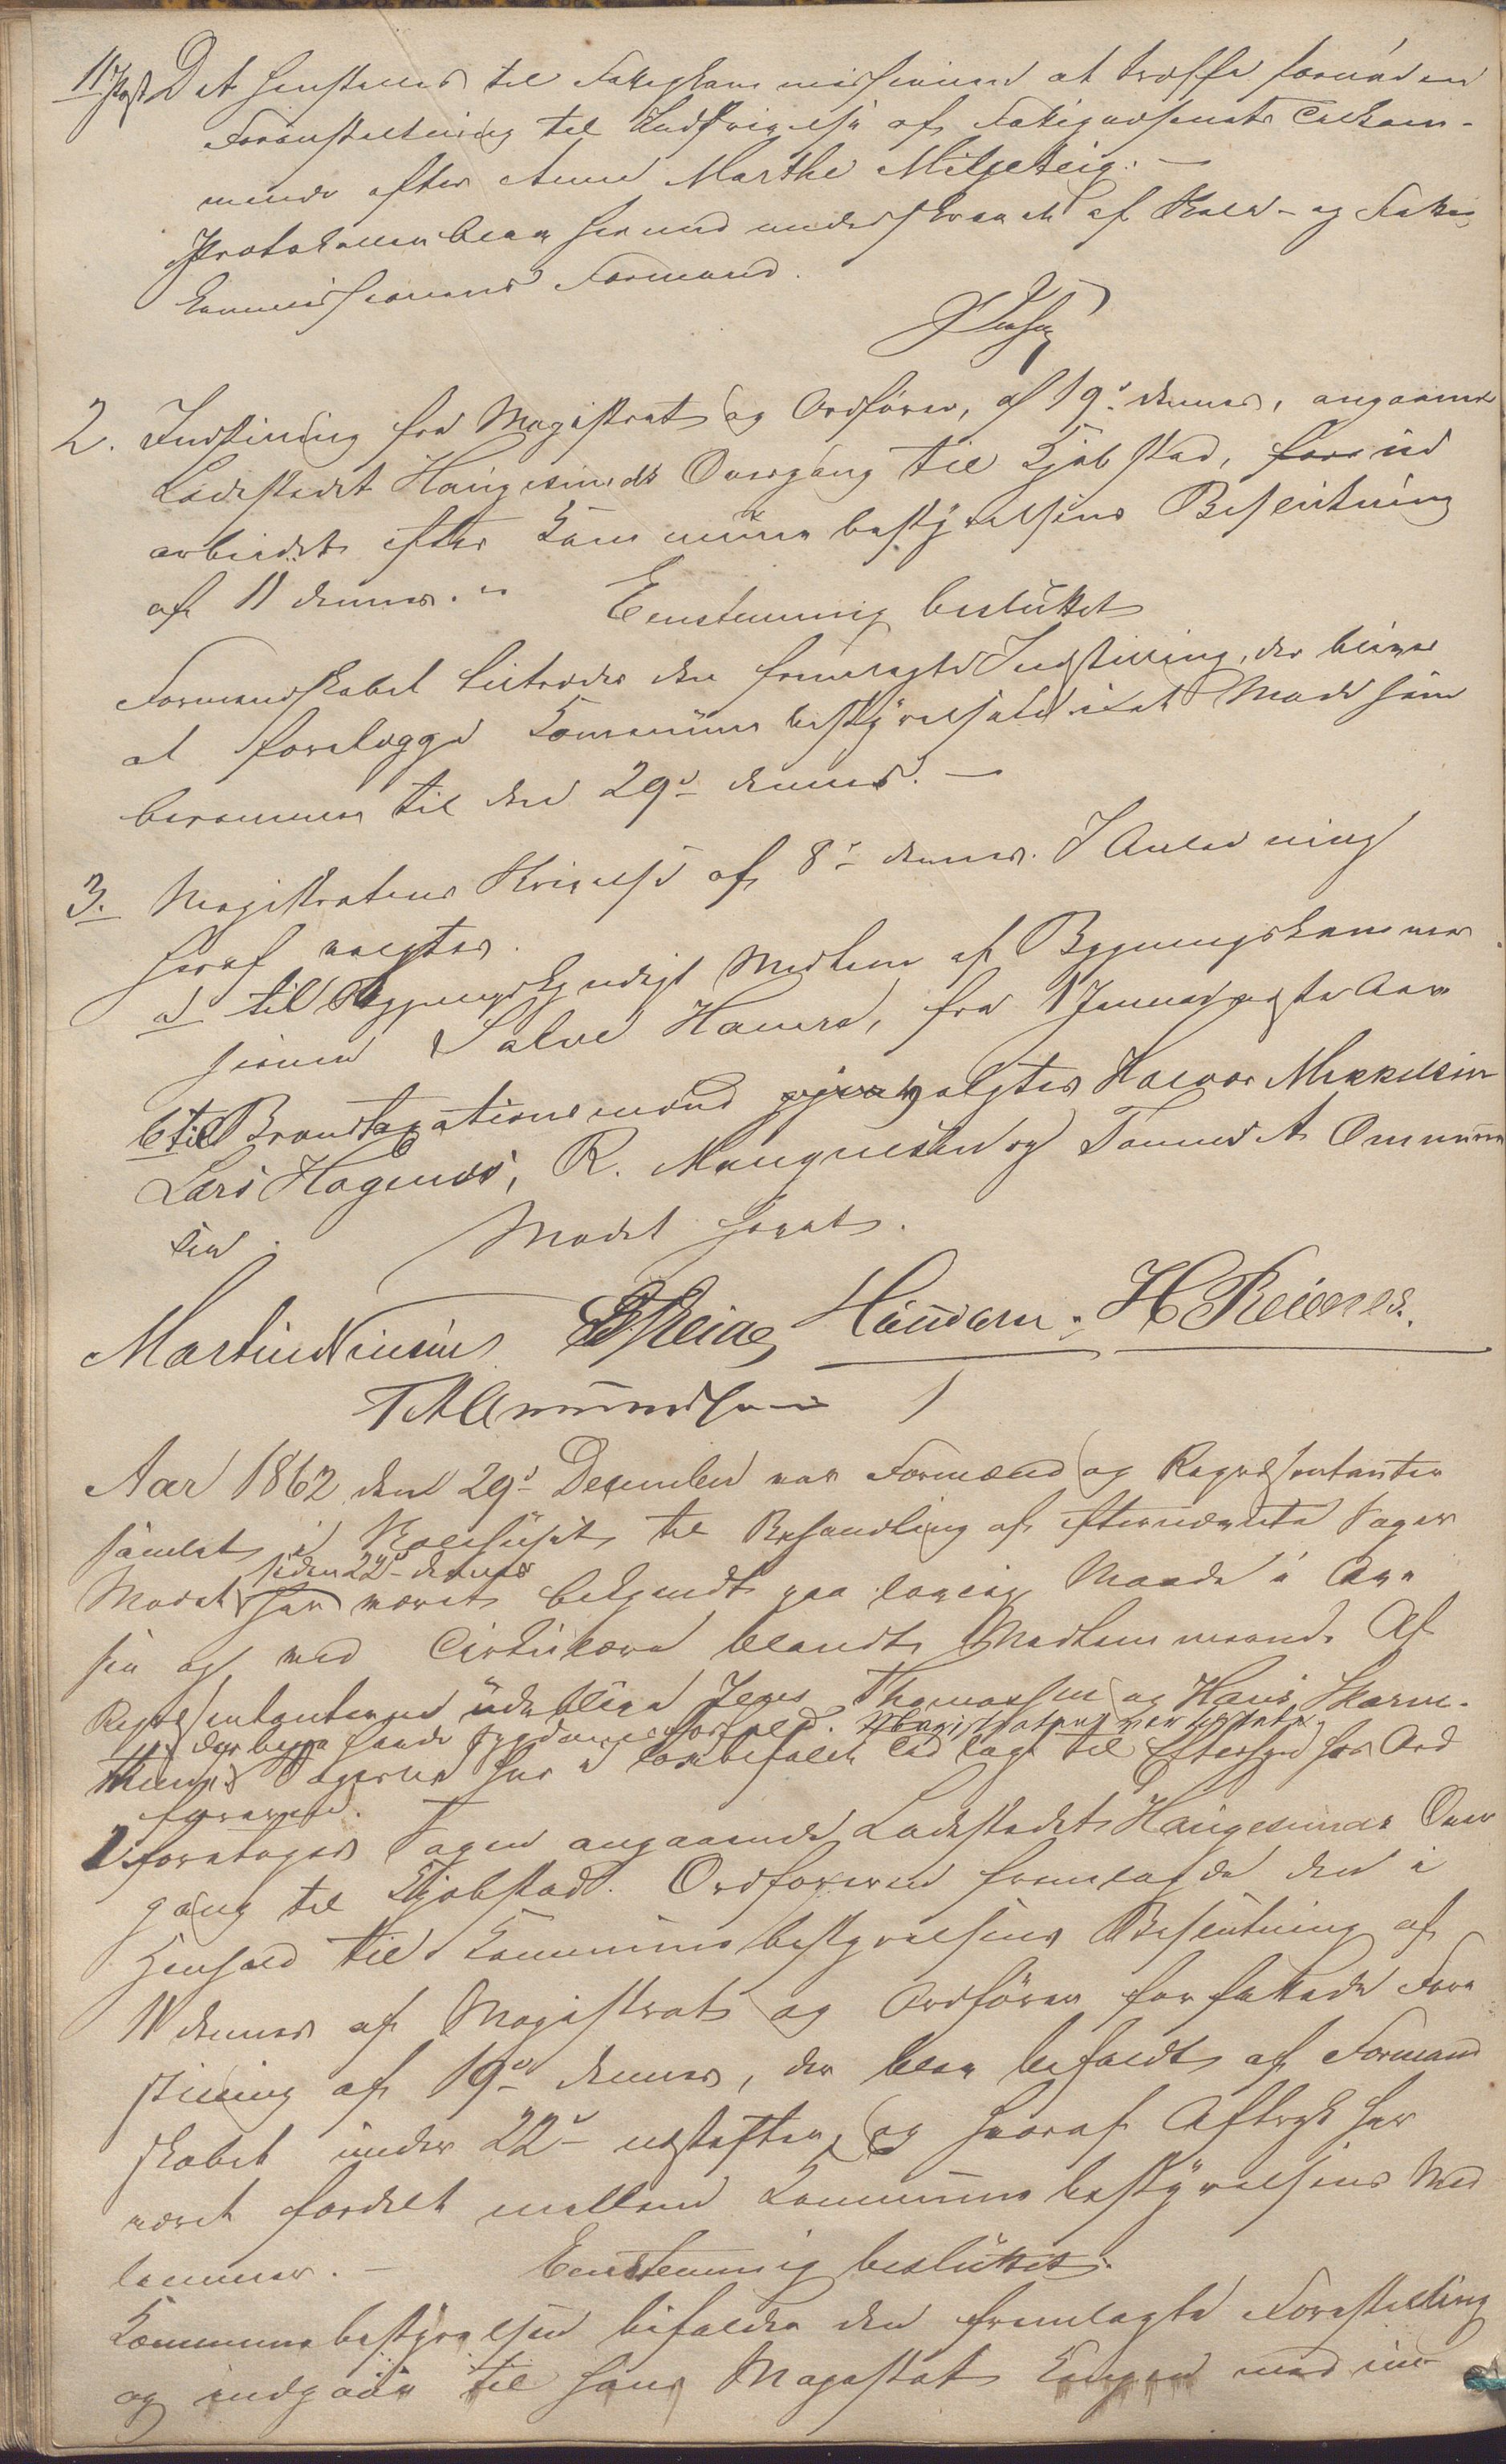 11 Post Det henstilles til Fattigkommissionen at træffe fornøden
Foranstaltning til Inddrivelse af Fattigvæsenets Tilkom-
mende efter Anne Marthe Miljeteig. —
Protokollen blev herunder underskrevet af Skole- og Fattig
kommissionens Formand.
2. Indstilling fra Magistrat og Ordfører, af 19de dennes, angaaende
Ladestedet Haugesunds Overgang til Kjøbstad, forud
arbeidet efter Kommunebestyrelsens Beslutning
af 11 dennes. –
Eenstemmig besluttet
Formandskabet tiltræder den fremlagte Indstilling, der bliver
at forelægge Kommunebestyrelsen i et Møde som
berammes til den 29de dennes. —
3. Magistratens Skrivelse af 8de dennes. I Anledning
heraf valgtes
a til Bygningskyndigt Medlem af Bygningskommis
sionen Salve Hamre, fra 1 Januar næste Aar
b til Brandtaxationsmænd valgtes Halvor Mikkelsen
Lars Hagenæs, R. Mangnesen og Tønnes A Ommund
sen.
Mødet hævet.
Martin Nilsen H Reienes.
T A Ommundsen
Aar 1862 den 29de December var Formænd og Repræsentanter
samlet i Skolehuset til Behandling af efternævnte Sager
siden 22de dennes
Mødet har været bekjendt paa lovlig Maade i Avi
sen og ved Cirkulære blandt Medlemmerne. Af
Repræsentanterne udeblive Jens Thomassen og Hans Skarn-
der begge havde Sygdomsforfald. Magistraten var tilstede
Sagerne har i lovbefalet Tid lagt til Eftersyn hos Ord
føreren.
1. foretoges Sagen angaaende Ladestedet Haugesunds Over
gang til Kjøbstad. Ordføreren fremlagde den i
Henhold til Kommunebestyrelsens Beslutning af
11 dennes af Magistrat og Ordfører forfattede Fore
stilling af 19de dennes, der blev bifaldt af Formand
skabet under 22de næstefter, og hvoraf Aftryk har
været fordelt mellem Kommunebestyrelsens Med
lemmer. –
Eenstemmig besluttet:
Kommunebestyrelsen bifalder den fremlagte Forestilling
og indgaar til hans Majestæt Kongen med un